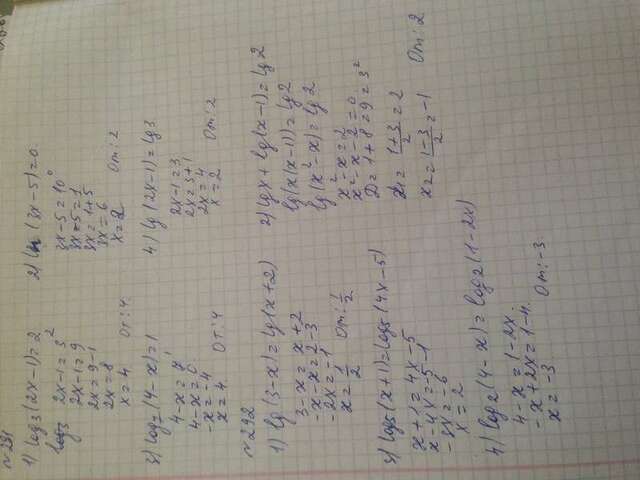 ~291
1) log₃(2x-1)=2
log₃ 2x-1=3²
2x-1=9
2x=9-1
2x=8
x=4 От:4
2) ln (3x-5)=0
3x-5=10⁰
3x-5=1
3x=1+5
3x=6
x=2 От:2
3) log₇(4-x)=1
4-x=7¹
4-x=0
-x=-4
x=4 От:4
4) lg(2x-1)=lg3
2x-1=3
2x=3+1
2x=4
x=2 От:2
~292
1) lg(3-x)=lg(x+2)
3-x=x+2
-x-x=2-3
-2x=-1
x=1/2 От:1/2
2) lgx+lg(x-1)=lg2
lg(x(x-1))=lg2
lg(x²-x)=lg2
x²-x=2
x²-x-2=0
D=1+8=9=3²
x₁=(1+3)/2=2
x₂=(1-3)/2=-1 От:2
3) log₅(x+1)=log₅(4x-5)
x+1=4x-5
x-4x=-5-1
-3x=-6
x=2
4) log₂(4-x)=log₂(1-2x)
4-x=1-2x
-x+2x=1-4
x=-3 От:-3